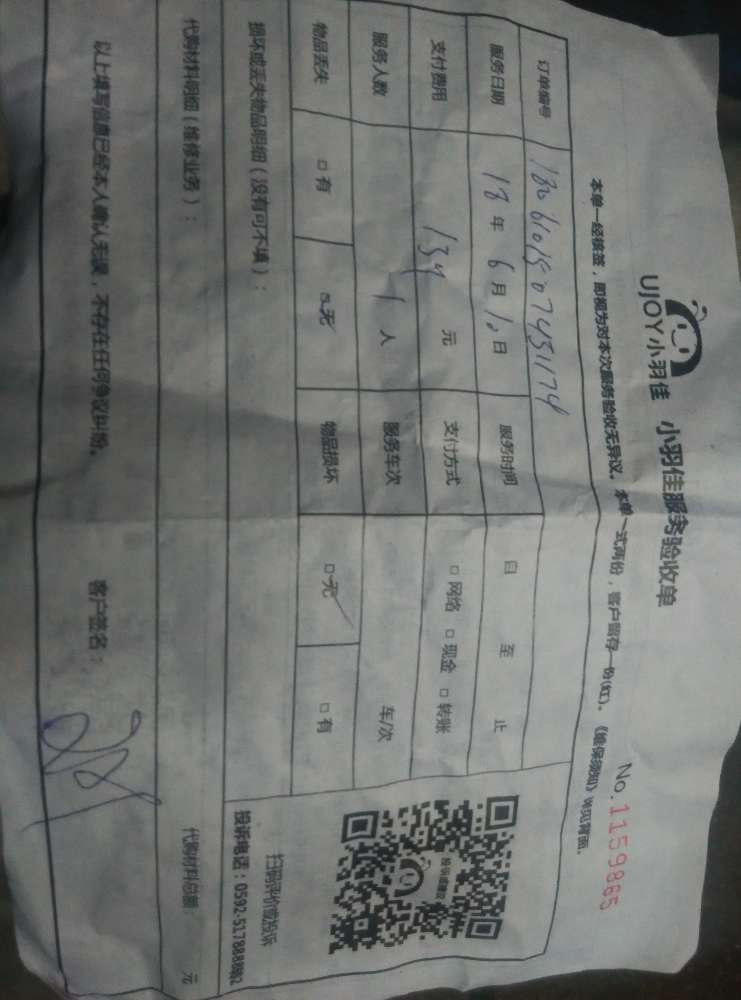 UJOY小羽佳 小羽佳服务验收单
No.1159865
本单一经核签，即视为对本次服务验收无异议。本单一式两份，客户留存一份(红)。《维保须知》详见背面。
订单编号
服务日期 18年6月10日 服务时间 自 至 止
支付费用 134 元 支付方式 □网络 □现金 □转账
服务人数 1 人 服务车次 车/次
物品丢失 □有 □无 物品损坏 □无 □有
损坏或丢失物品明细（没有可不填）：
扫码评价或投诉
投诉电话：0592-5178888转2
代购材料明细（维修业务）： 代购材料总额： 元
以上填写信息已经本人确认无误，不存在任何争议纠纷。 客户签名：